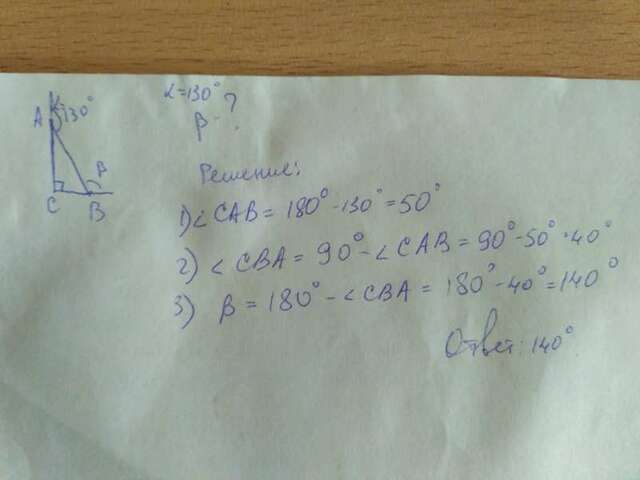 α=130°
β - ?
A
130°
β
C
B
Решение:
1) ∠CAB = 180° - 130° = 50°
2) ∠CBA = 90° - ∠CAB = 90° - 50° = 40°
3) β = 180° - ∠CBA = 180° - 40° = 140°
Ответ: 140°